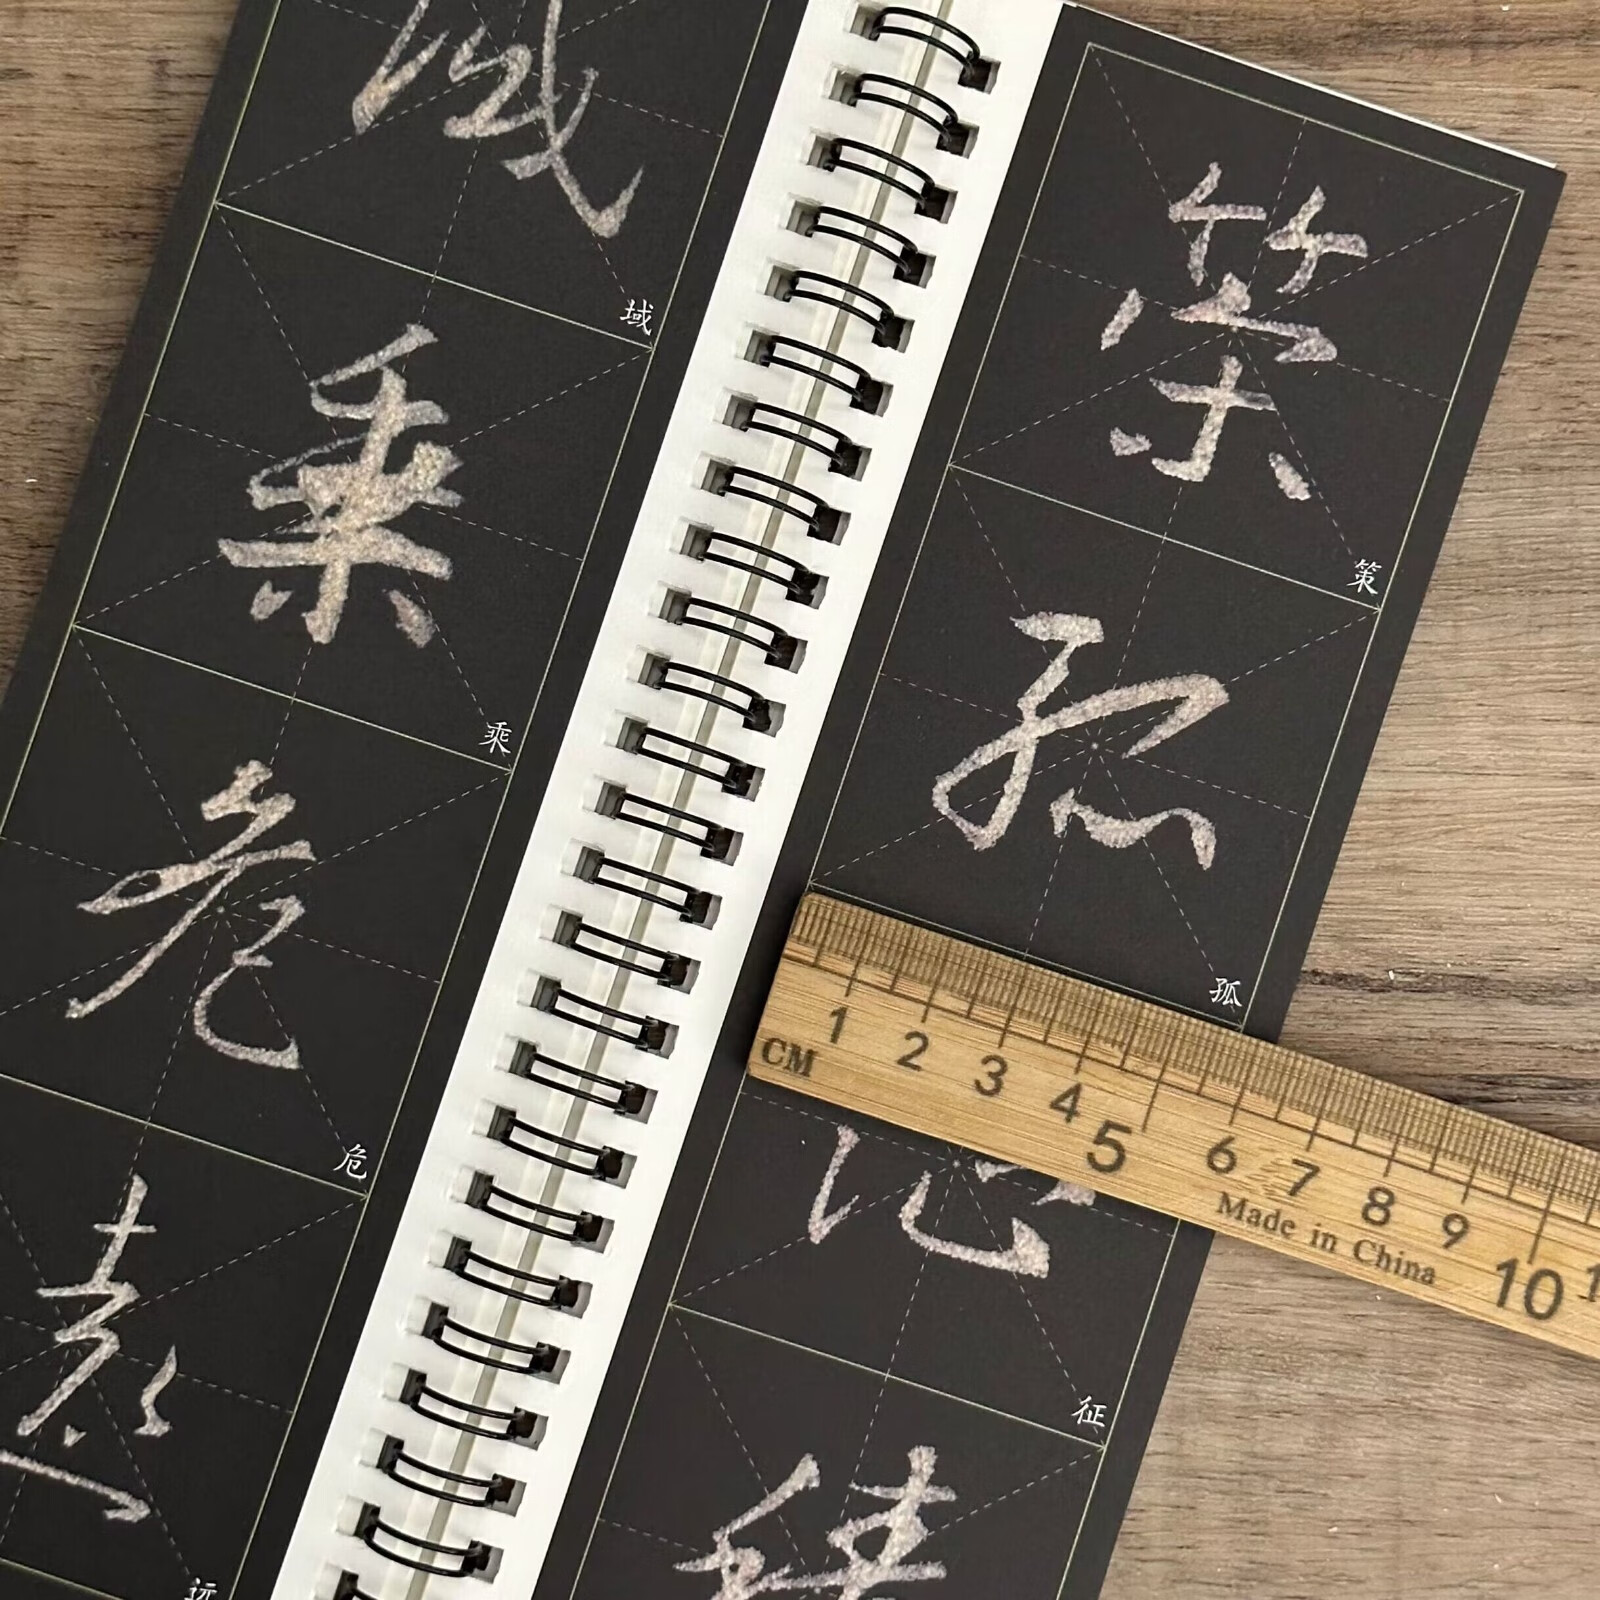 域
域
乘
乘
危
危
遠
远
策
策
孤
孤
征
積
1 2 3 4 5 6 7 8 9 10
CM
Made in China